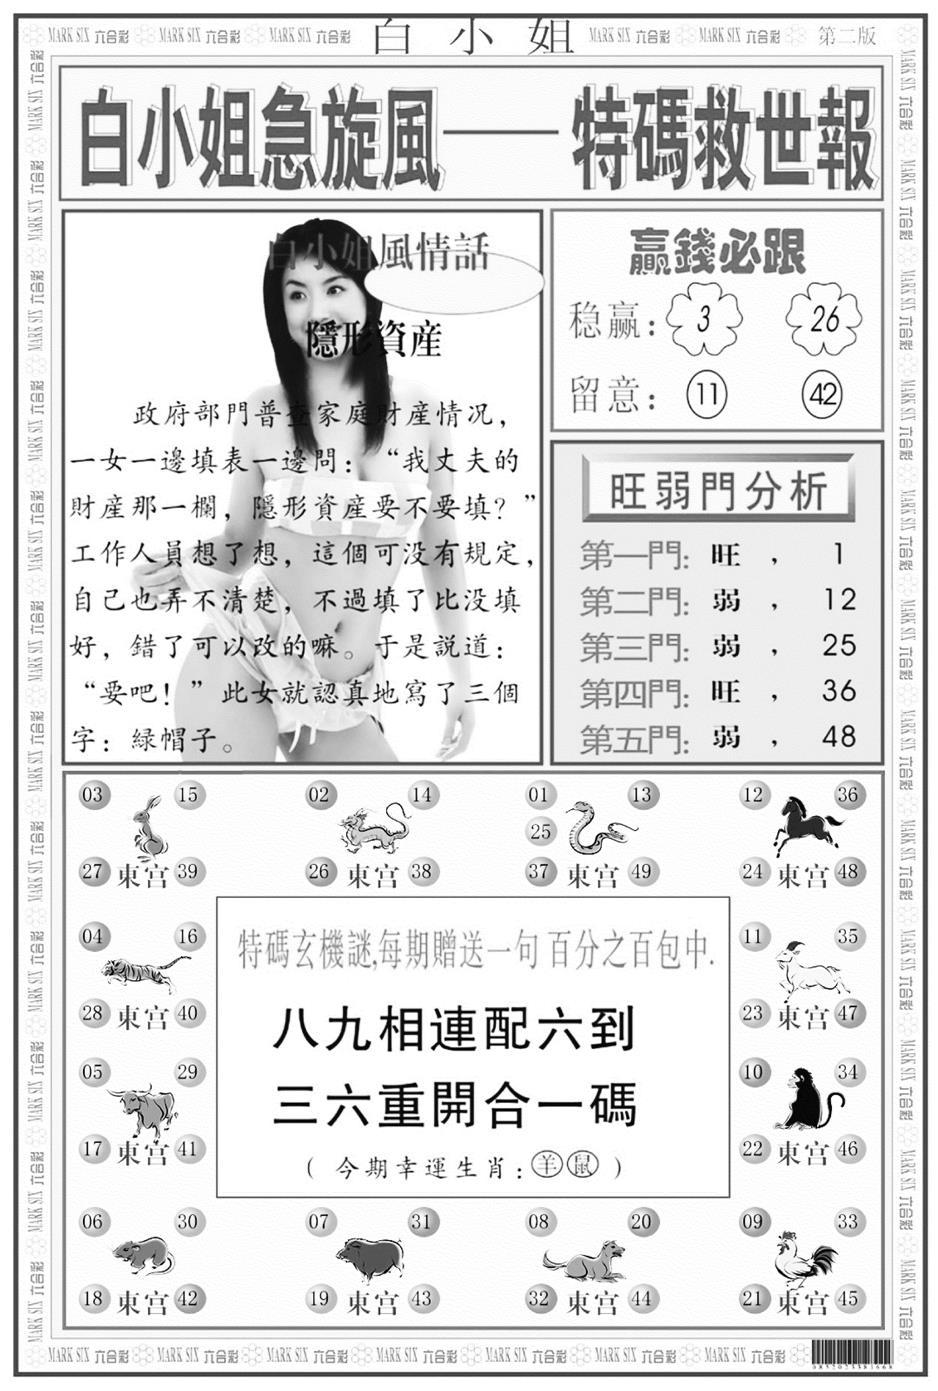 MARK SIX 六合彩 MARK SIX 六合彩 MARK SIX 六合彩 白小姐 MARK SIX 六合彩 MARK SIX 六合彩 第二版
白小姐急旋風——特碼救世報
白小姐風情話
隱形資産
政府部門普查家庭財産情况，
一女一邊填表一邊問：“我丈夫的
財産那一欄，隱形資産要不要填？”
工作人員想了想，這個可没有規定，
自己也弄不清楚，不過填了比没填
好，錯了可以改的嘛。于是説道：
“要吧！”此女就認真地寫了三個
字：緑帽子。
贏錢必跟
稳赢：3 26
留意：11 42
旺弱門分析
第一門：旺，1
第二門：弱，12
第三門：弱，25
第四門：旺，36
第五門：弱，48
03 15 02 14 01 13 12 36
25
27 東宫 39 26 東宫 38 37 東宫 49 24 東宫 48
特碼玄機謎,每期贈送一句 百分之百包中.
04 16 11 35
28 東宫 40 23 東宫 47
八九相連配六到
05 29 10 34
三六重開合一碼
17 東宫 41 22 東宫 46
（今期幸運生肖：羊 鼠）
06 30 07 31 08 20 09 33
18 東宫 42 19 東宫 43 32 東宫 44 21 東宫 45
MARK SIX 六合彩 MARK SIX 六合彩 MARK SIX 六合彩 MARK SIX 六合彩 MARK SIX 六合彩 MARK SIX 六合彩 MARK SIX 六合彩